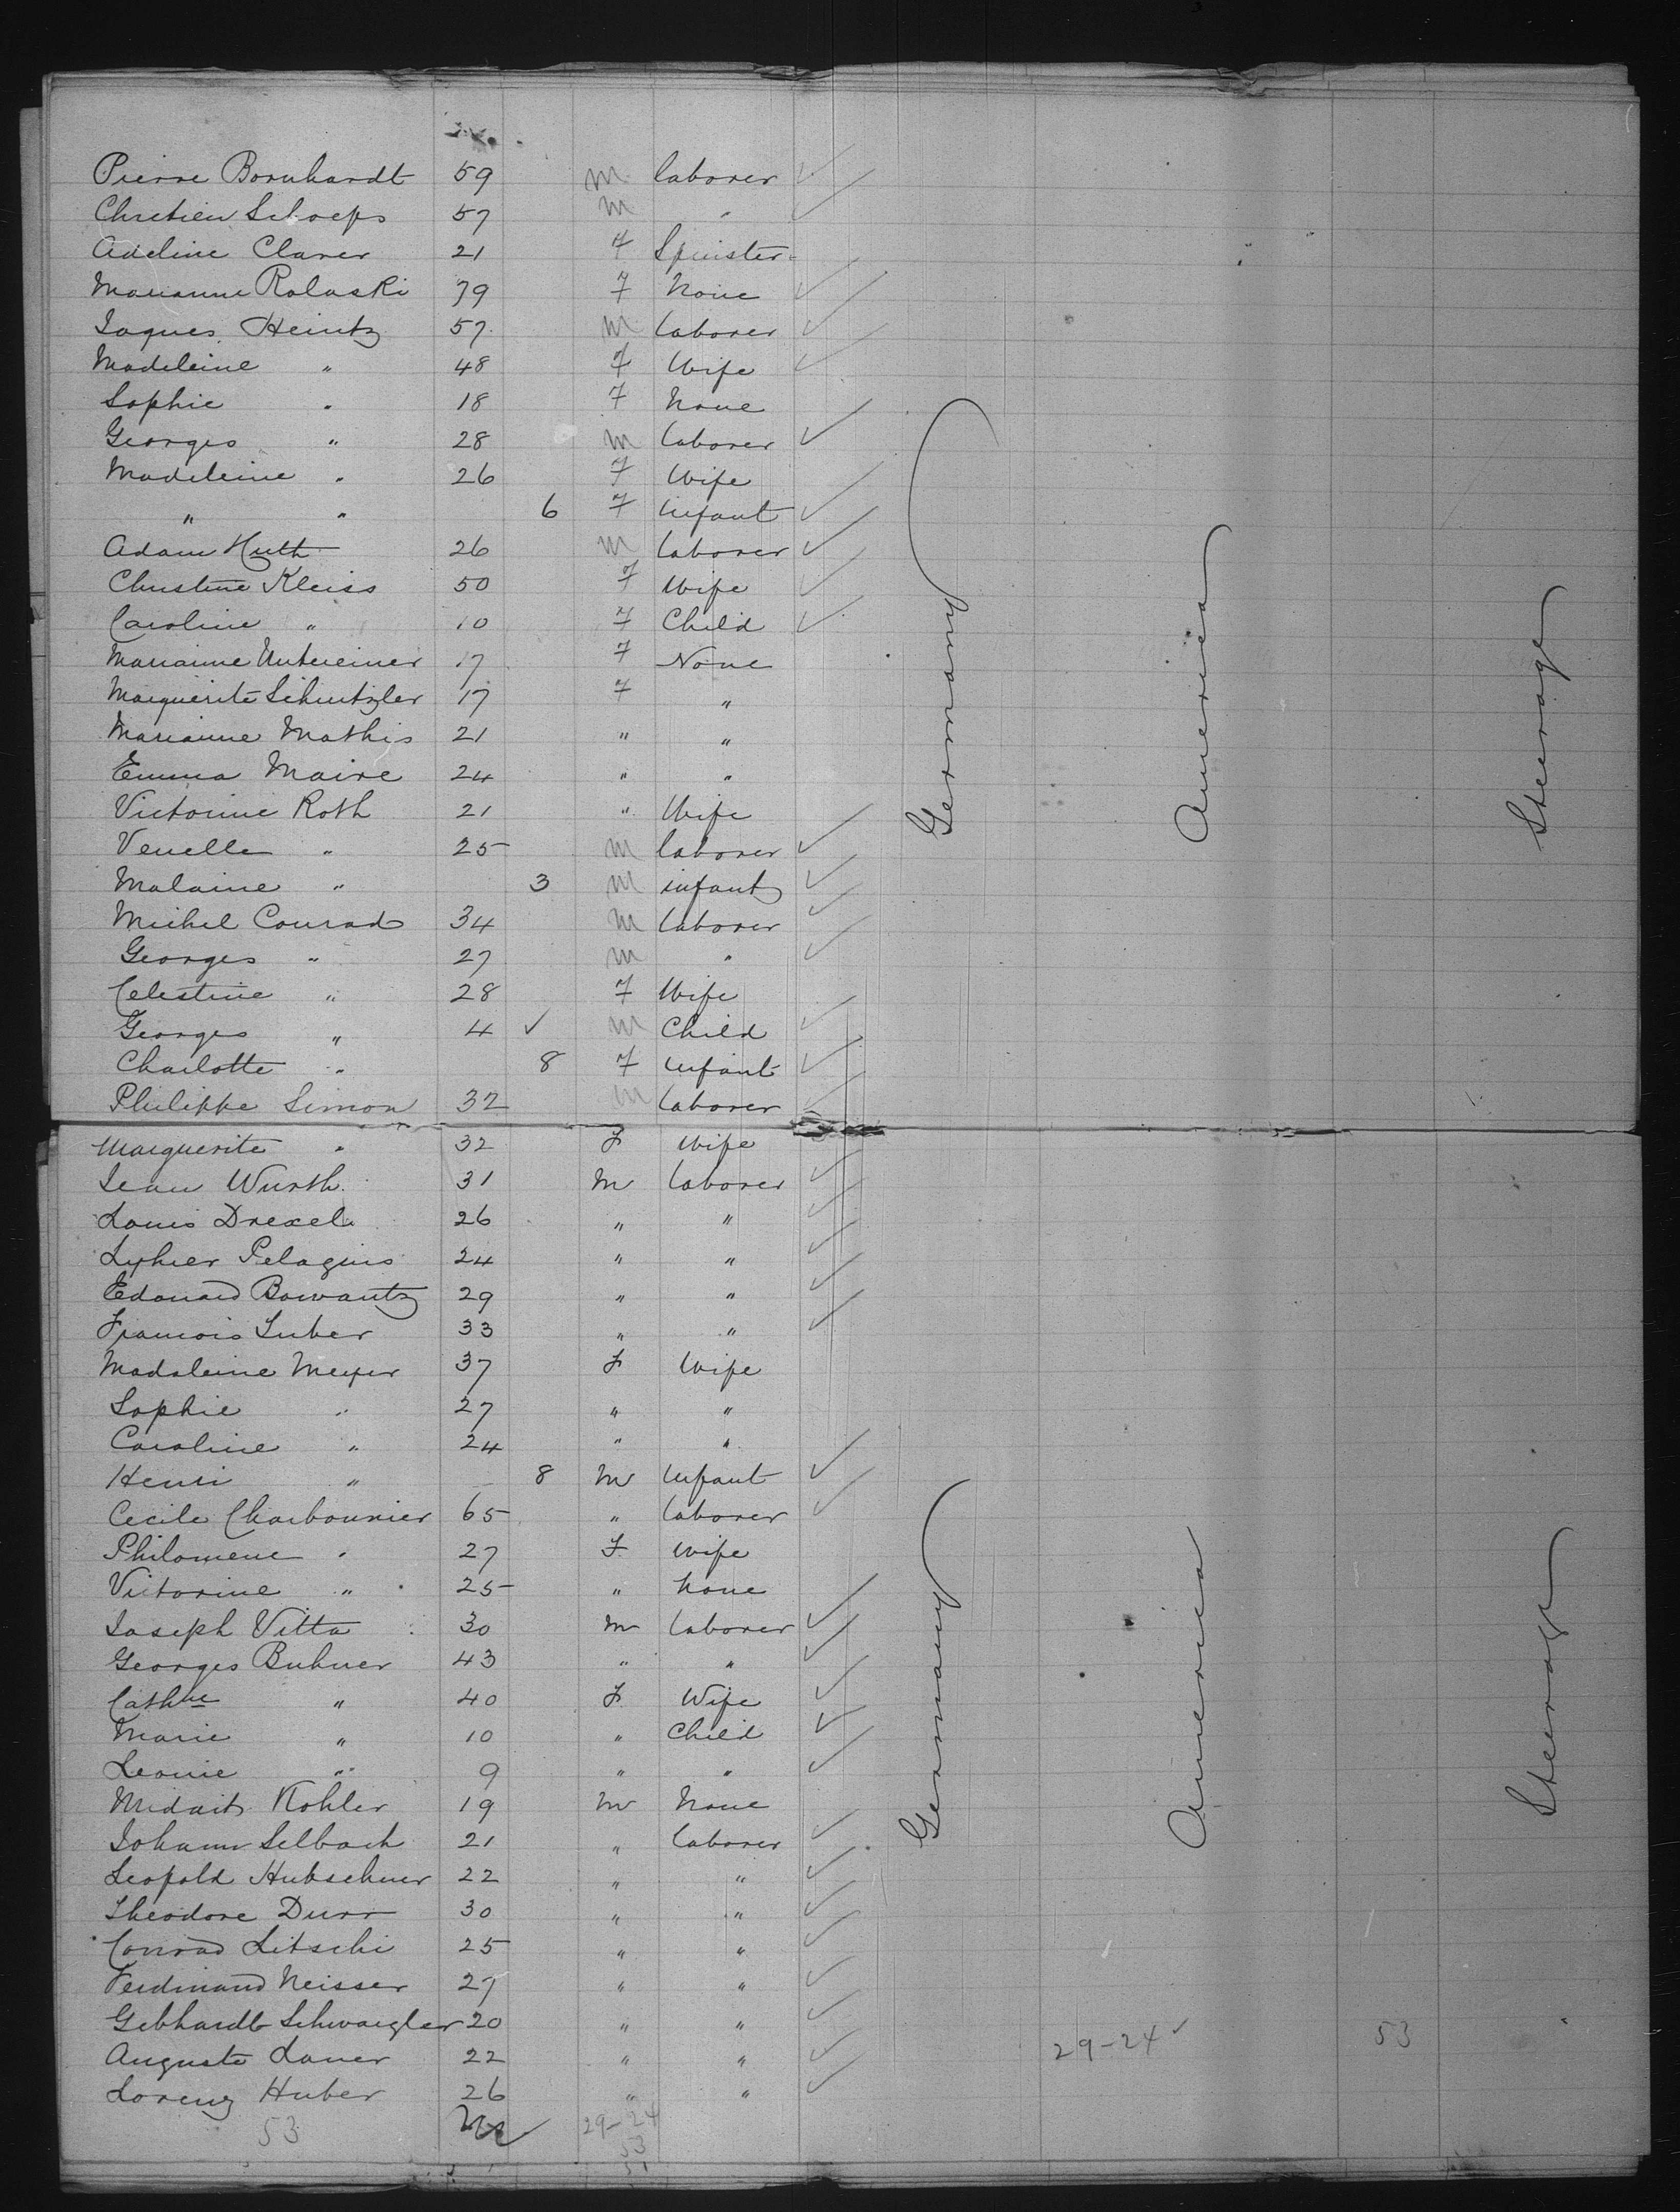 Pierre Bornhardt 59 m laborer
Chretien Schoeps 57 m "
Adeline Claver 21 f Spinster
Marianne Ralaski 79 f None
Jaques Heintz 57 m laborer
Madeleine " 48 f Wife
Sophie " 18 f None
Georges " 28 m laborer
Madeleine " 26 f Wife
" " 6 f Infant
Adam Huth 26 m laborer
Christine Kleiss 50 f Wife
Caroline " 10 f Child
Marianne Untereiner 17 f None
Marguerite Schnitzler 17 f "
Marianne Mathis 21 " "
Emma Maire 24 " "
Victorine Roth 21 " Wife
Venelle " 25 m laborer
Malaine " 3 m infant
Michel Conrad 34 m laborer
Georges " 27 m "
Celestine " 28 f Wife
Georges " 4 ✓ m Child
Charlotte " 8 f Infant
Philippe Simon 32 m laborer
Germany America Steerage
Marguerite " 32 F Wife
Jean Wurth 31 M laborer
Louis Drexel 26 " "
Pelagius 24 " "
Edouard Bawantz 29 " "
Francois Suber 33 " "
Madaleine Meyer 37 F Wife
Sophie " 27 " "
Caroline " 24 " "
Henri " 8 M Infant
Cecile Charbounier 65 " laborer
Philomene " 27 F Wife
Victorine " 25 " None
Joseph Vitta 30 M laborer
Georges Buhner 43 " "
Cathne " 40 F Wife
Marie " 10 " Child
Leonie " 9 " "
Kohler 19 M None
Johann Selbach 21 " laborer
Leopold Hubschner 22 " "
Theodore Durr 30 " "
Conrad Litschi 25 " "
Ferdinand Neisser 27 " "
Gebhardt Schwaigler 20 " "
Auguste Lauer 22 " "
Lorenz Huber 26 " "
Germany America Steerage
29-24 ✓ 53
53 29-24
53